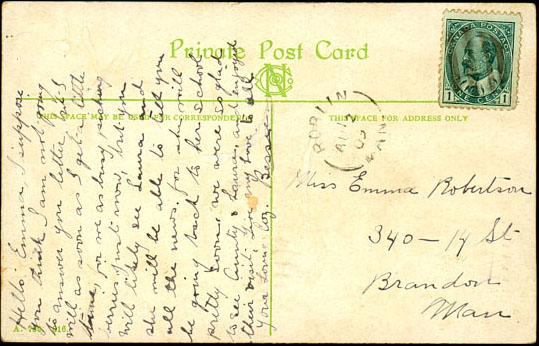 Private Post Card
CANADA POSTAGE
1 CENTS 1
THIS SPACE MAY BE USED FOR CORRESPONDENCE
THIS SPACE FOR ADDRESS ONLY
Hello Emma. I suppose
you think I am not going
to answer your letter but I
will as soon as I get a little
time, for we are busy picking
berries just now, but you
will likely see Laura and
she will be able to tell you
all the news. for she will
be going back to her school
pretty soon, we were so glad
to see Aunty & Laura, and enjoyed
their visit, give my love to all
Your Loving Coz. Bessie
Miss Emma Robertson
340-14 St
Brandon
Man